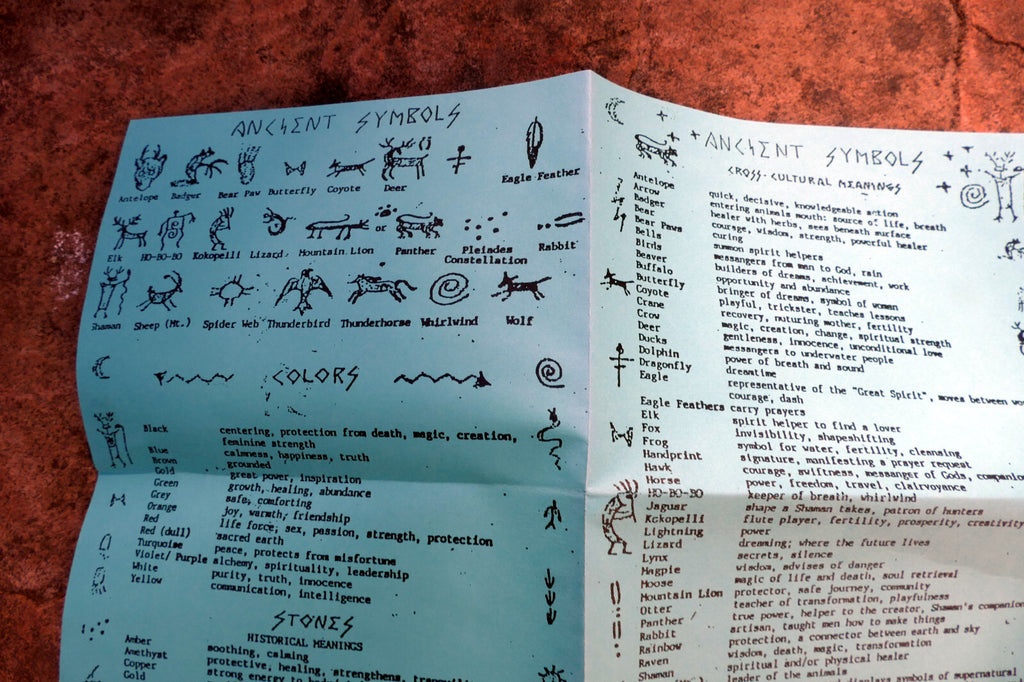 ANCIENT SYMBOLS
Antelope Badger Bear Paw Butterfly Coyote Deer Eagle Feather
or
Elk HO-BO-BO Kokopelli Lizard Mountain Lion Panther Pleiades Rabbit
Constellation
Shaman Sheep (Mt.) Spider Web Thunderbird Thunderhorse Whirlwind Wolf
COLORS
Black centering, protection from death, magic, creation,
feminine strength
Blue calmness, happiness, truth
Brown grounded
Gold great power, inspiration
Green growth, healing, abundance
Grey safe, comforting
Orange joy, warmth, friendship
Red life force, sex, passion, strength, protection
Red (dull) sacred earth
Turquoise peace, protects from misfortune
Violet/ Purple alchemy, spirituality, leadership
White purity, truth, innocence
Yellow communication, intelligence
STONES
HISTORICAL MEANINGS
Amber soothing, calming
Amethyst protective, healing, strengthens,
Copper strong energy to
Gold
ANCIENT SYMBOLS
CROSS-CULTURAL MEANINGS
Antelope quick, decisive, knowledgeable action
Arrow entering animals mouth: source of life, breath
Badger healer with herbs, sees beneath surface
Bear courage, wisdom, strength, powerful healer
Bear Paws curing
Bells summon spirit helpers
Birds messangers from man to God, rain
Beaver builders of dreams, achievement, work
Buffalo opportunity and abundance
Butterfly bringer of dreams, symbol of woman
Coyote playful, trickster, teaches lessons
Crane recovery, naturing mother, fertility
Crow magic, creation, change, spiritual strength
Deer gentleness, innocence, unconditional love
Ducks messangers to underwater people
Dolphin power of breath and sound
Dragonfly dreamtime
Eagle representative of the "Great Spirit", moves between
courage, dash
Eagle Feathers carry prayers
Elk spirit helper to find a lover
Fox invisibility, shapeshifting
Frog symbol for water, fertility, cleansing
Handprint signature, manifesting a prayer request
Hawk courage, swiftness, messanger of Gods,
Horse power, freedom, travel, clairvoyance
HO-BO-BO keeper of breath, whirlwind
Jaguar shape a Shaman takes, patron of hunters
Kokopelli flute player, fertility, prosperity, creativity
Lightning power
Lizard dreaming; where the future lives
Lynx secrets, silence
Magpie wisdom, advises of danger
Moose magic of life and death, soul retrieval
Mountain Lion protector, safe journey, community
Otter teacher of transformation, playfulness
Panther true power, helper to the creator, Shaman's
Rabbit artisan, taught men how to make things
Rainbow protection, a connector between earth and sky
Raven wisdom, death, magic, transformation
Shaman spiritual and/or physical healer
leader of the animals
displays symbols of supernatural